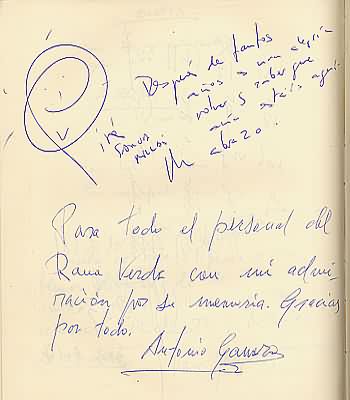 Después de tantos
años es una alegría
volver y saber que
aún estáis aquí.
Un abrazo.
Para todo el personal del
Rana Verde con mi admi-
ración por su memoria. Gracias
por todo.
Antonio